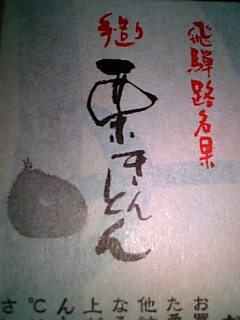 飛騨路名菓
手造り
栗きんとん
お買
た
他
な
上
ん
℃
さ